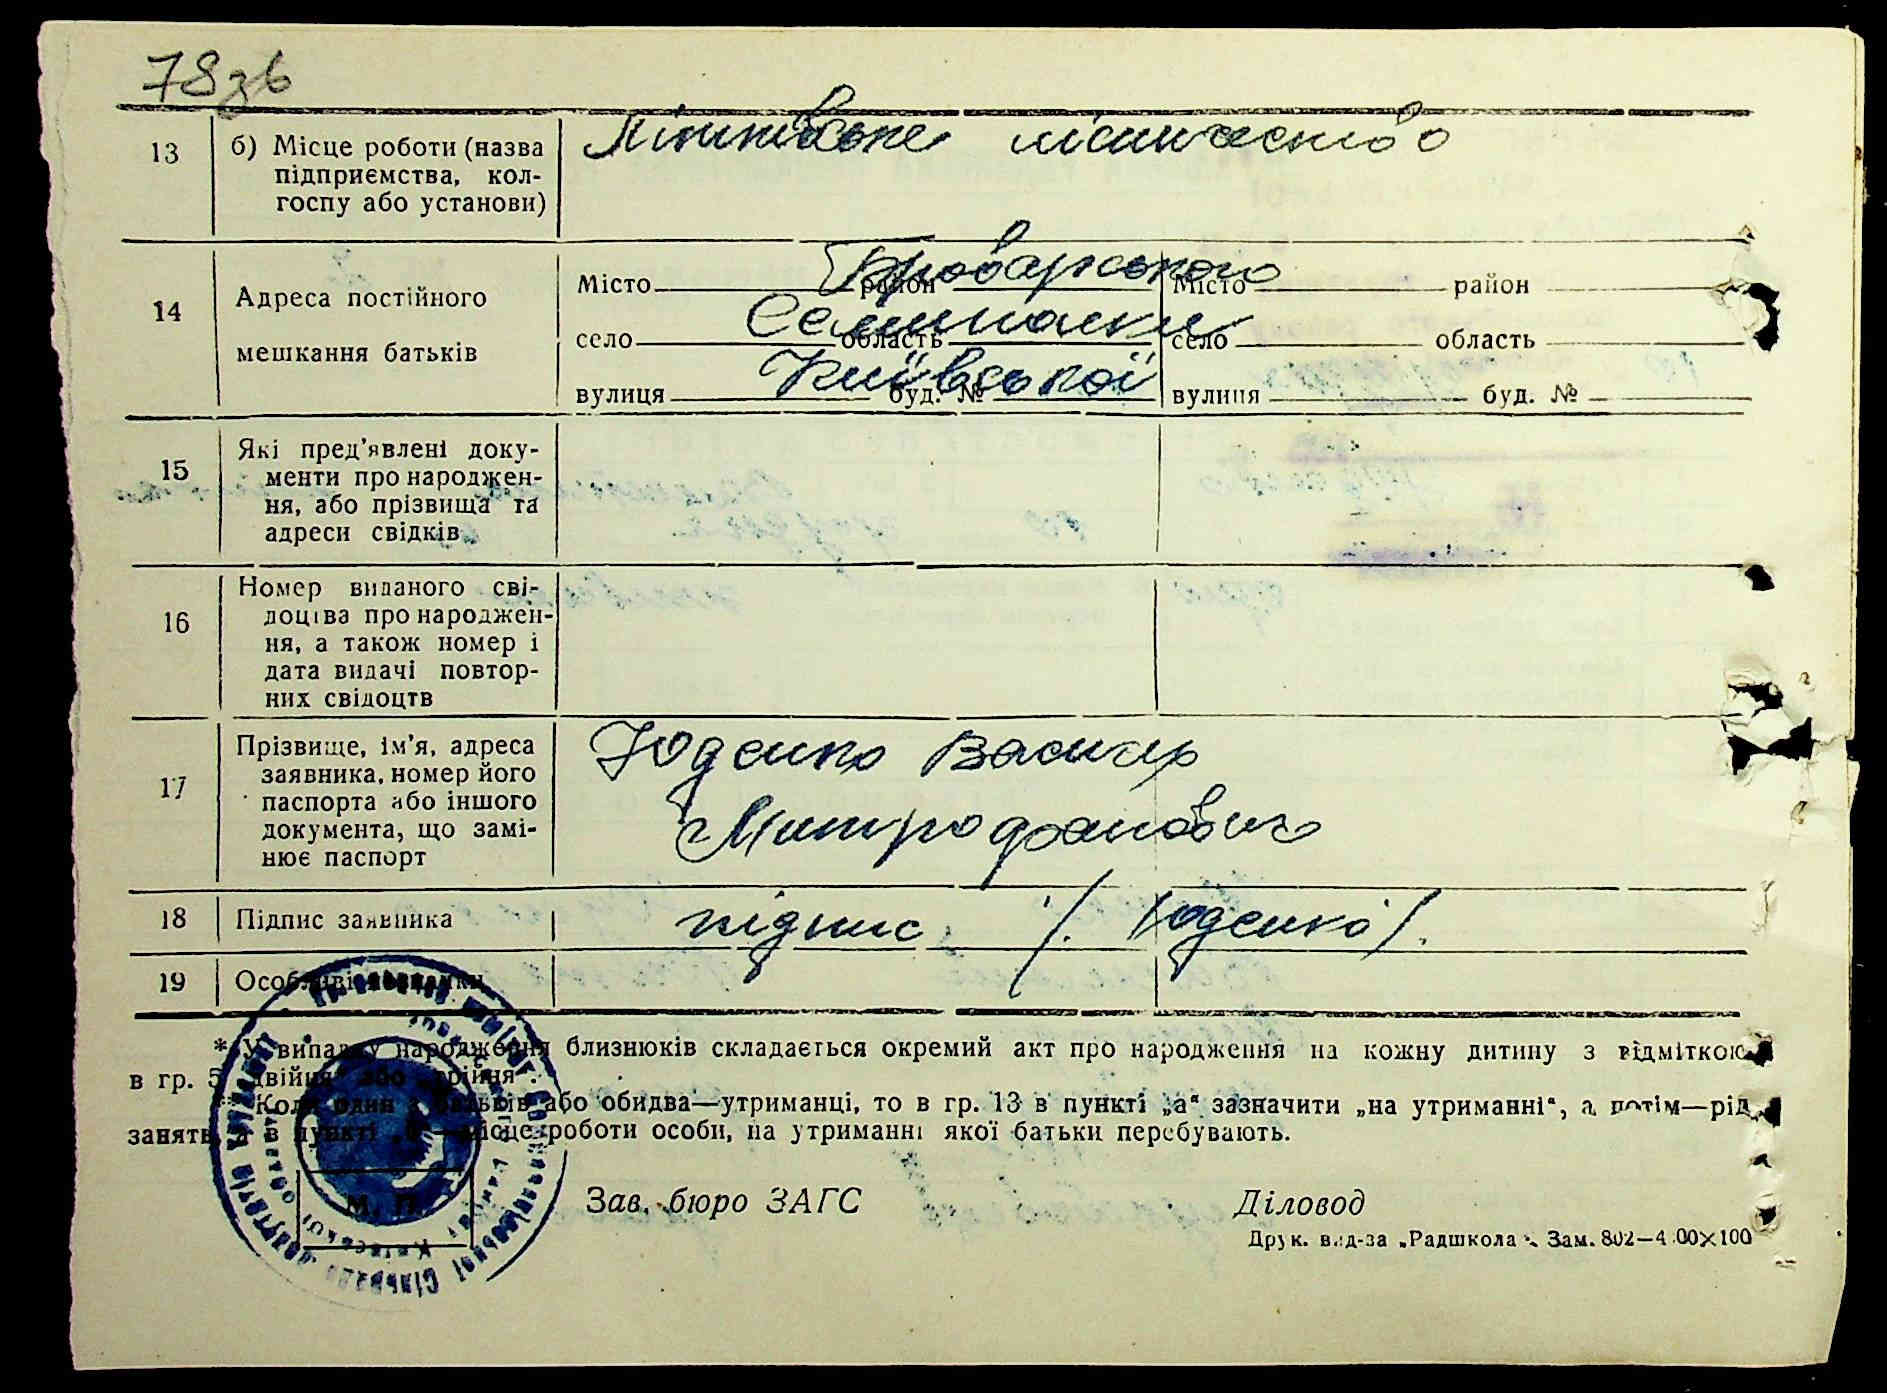 78зв
13
б) Місце роботи (назва
підприємства, кол-
госпу або установи)
лісництво
14
Адреса постійного
мешкання батьків
Місто район Броварського Місто район
село Семиполки область село область
вулиця Київської буд. № вулиця буд. №
15
Які пред'явлені доку-
менти про народжен-
ня, або прізвища та
адреси свідків
16
Номер виданого сві-
доцтва про народжен-
ня, а також номер і
дата видачі повтор-
них свідоцтв
17
Прізвище, ім'я, адреса
заявника, номер його
паспорта або іншого
документа, що замі-
нює паспорт
Юденко Василь
Митрофанович
18
Підпис заявника
підпис /. Юденко /.
19
Особливі
* У випадку народження близнюків складається окремий акт про народження на кожну дитину з відміткою
в гр. 5 „двійня" або „трійня".
** Коли один з батьків або обидва—утриманці, то в гр. 13 в пункті „а" зазначити „на утриманні", а потім—рід
занять, а в пункті „б"—місце роботи особи, на утриманні якої батьки перебувають.
М. П.
Зав. бюро ЗАГС
Діловод
Друк. вид-ва „Радшкола". Зам. 802—4.00×100